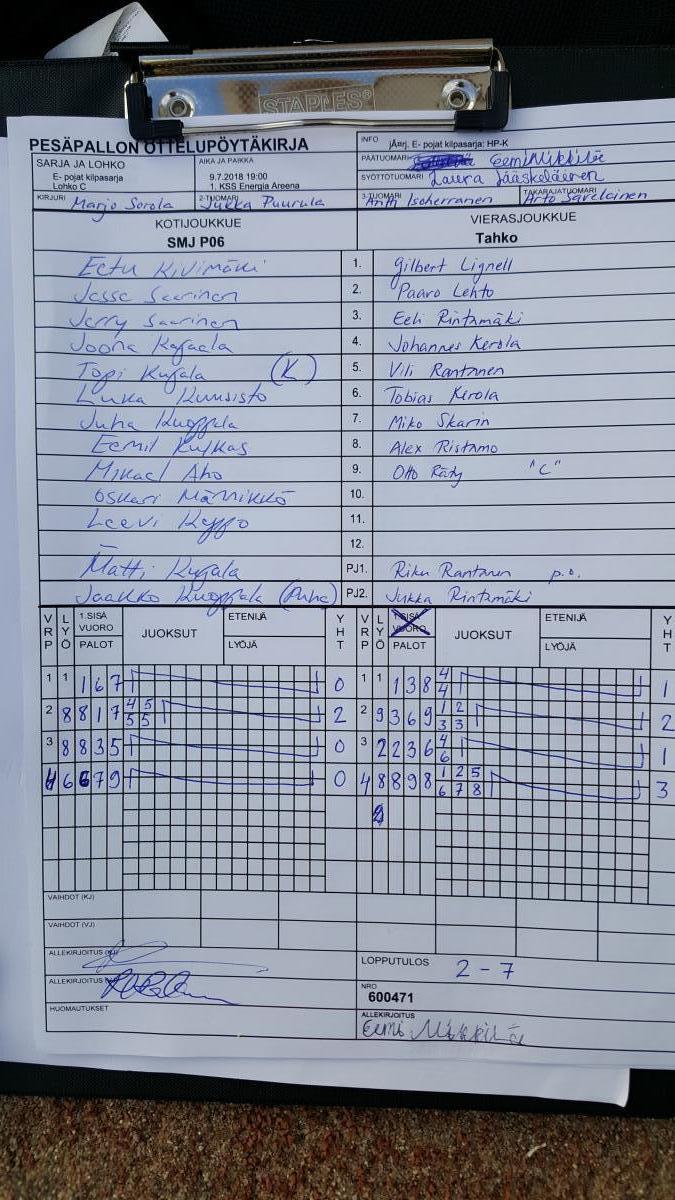 STAPLES®
PESÄPALLON OTTELUPÖYTÄKIRJA
INFO jÄ¤rj. E- pojat kilpasarja: HP-K
SARJA JA LOHKO
E- pojat kilpasarja
Lohko C
AIKA JA PAIKKA
9.7.2018 19:00
1. KSS Energia Areena
PÄÄTUOMARI Eemi Mikkilä
SYÖTTÖTUOMARI Laura Jääskeläinen
KIRJURI Marjo Sorola
2-TUOMARI Jukka Puurula
3-TUOMARI Antti Isoherranen
TAKARAJATUOMARI Arto Savelainen
KOTIJOUKKUE
SMJ P06
VIERASJOUKKUE
Tahko
Eetu Kivimäki 1. Gilbert Lignell
Jesse Saarinen 2. Paavo Lehto
Jerry Saarinen 3. Eeli Rintamäki
Joona 4. Johannes Kerola
Topi Kujala (K) 5. Vili Rantanen
Luka Kuusisto 6. Tobias Kerola
Juha Kuoppala 7. Miko Skarin
Eemil Kulkas 8. Alex Ristamo
Mikael Aho 9. Otto Rädy "C"
Oskari Männikkö 10.
Leevi 11.
12.
Matti Kujala PJ1. Riku Rantanen p.o.
Jaakko Kuoppala PJ2. Jukka Rintamäki
VRP LYÖ 1.SISÄ VUORO PALOT JUOKSUT ETENIJÄ LYÖJÄ YHT VRP LYÖ 1.SISÄ VUORO PALOT JUOKSUT ETENIJÄ LYÖJÄ YHT
1 1 1 6 7 0 1 1 1 3 8 4 4 1
2 8 8 1 7 4 5 5 5 2 2 9 3 6 9 1 2 3 3 2
3 8 8 3 5 0 3 2 2 3 6 4 6 1
4 6 6 7 9 0 4 8 8 9 8 1 2 5 6 7 8 3
9
VAIHDOT (KJ)
VAIHDOT (VJ)
ALLEKIRJOITUS (KJ)
LOPPUTULOS 2-7
ALLEKIRJOITUS
NRO
600471
HUOMAUTUKSET
ALLEKIRJOITUS
Eemi Mikkilä